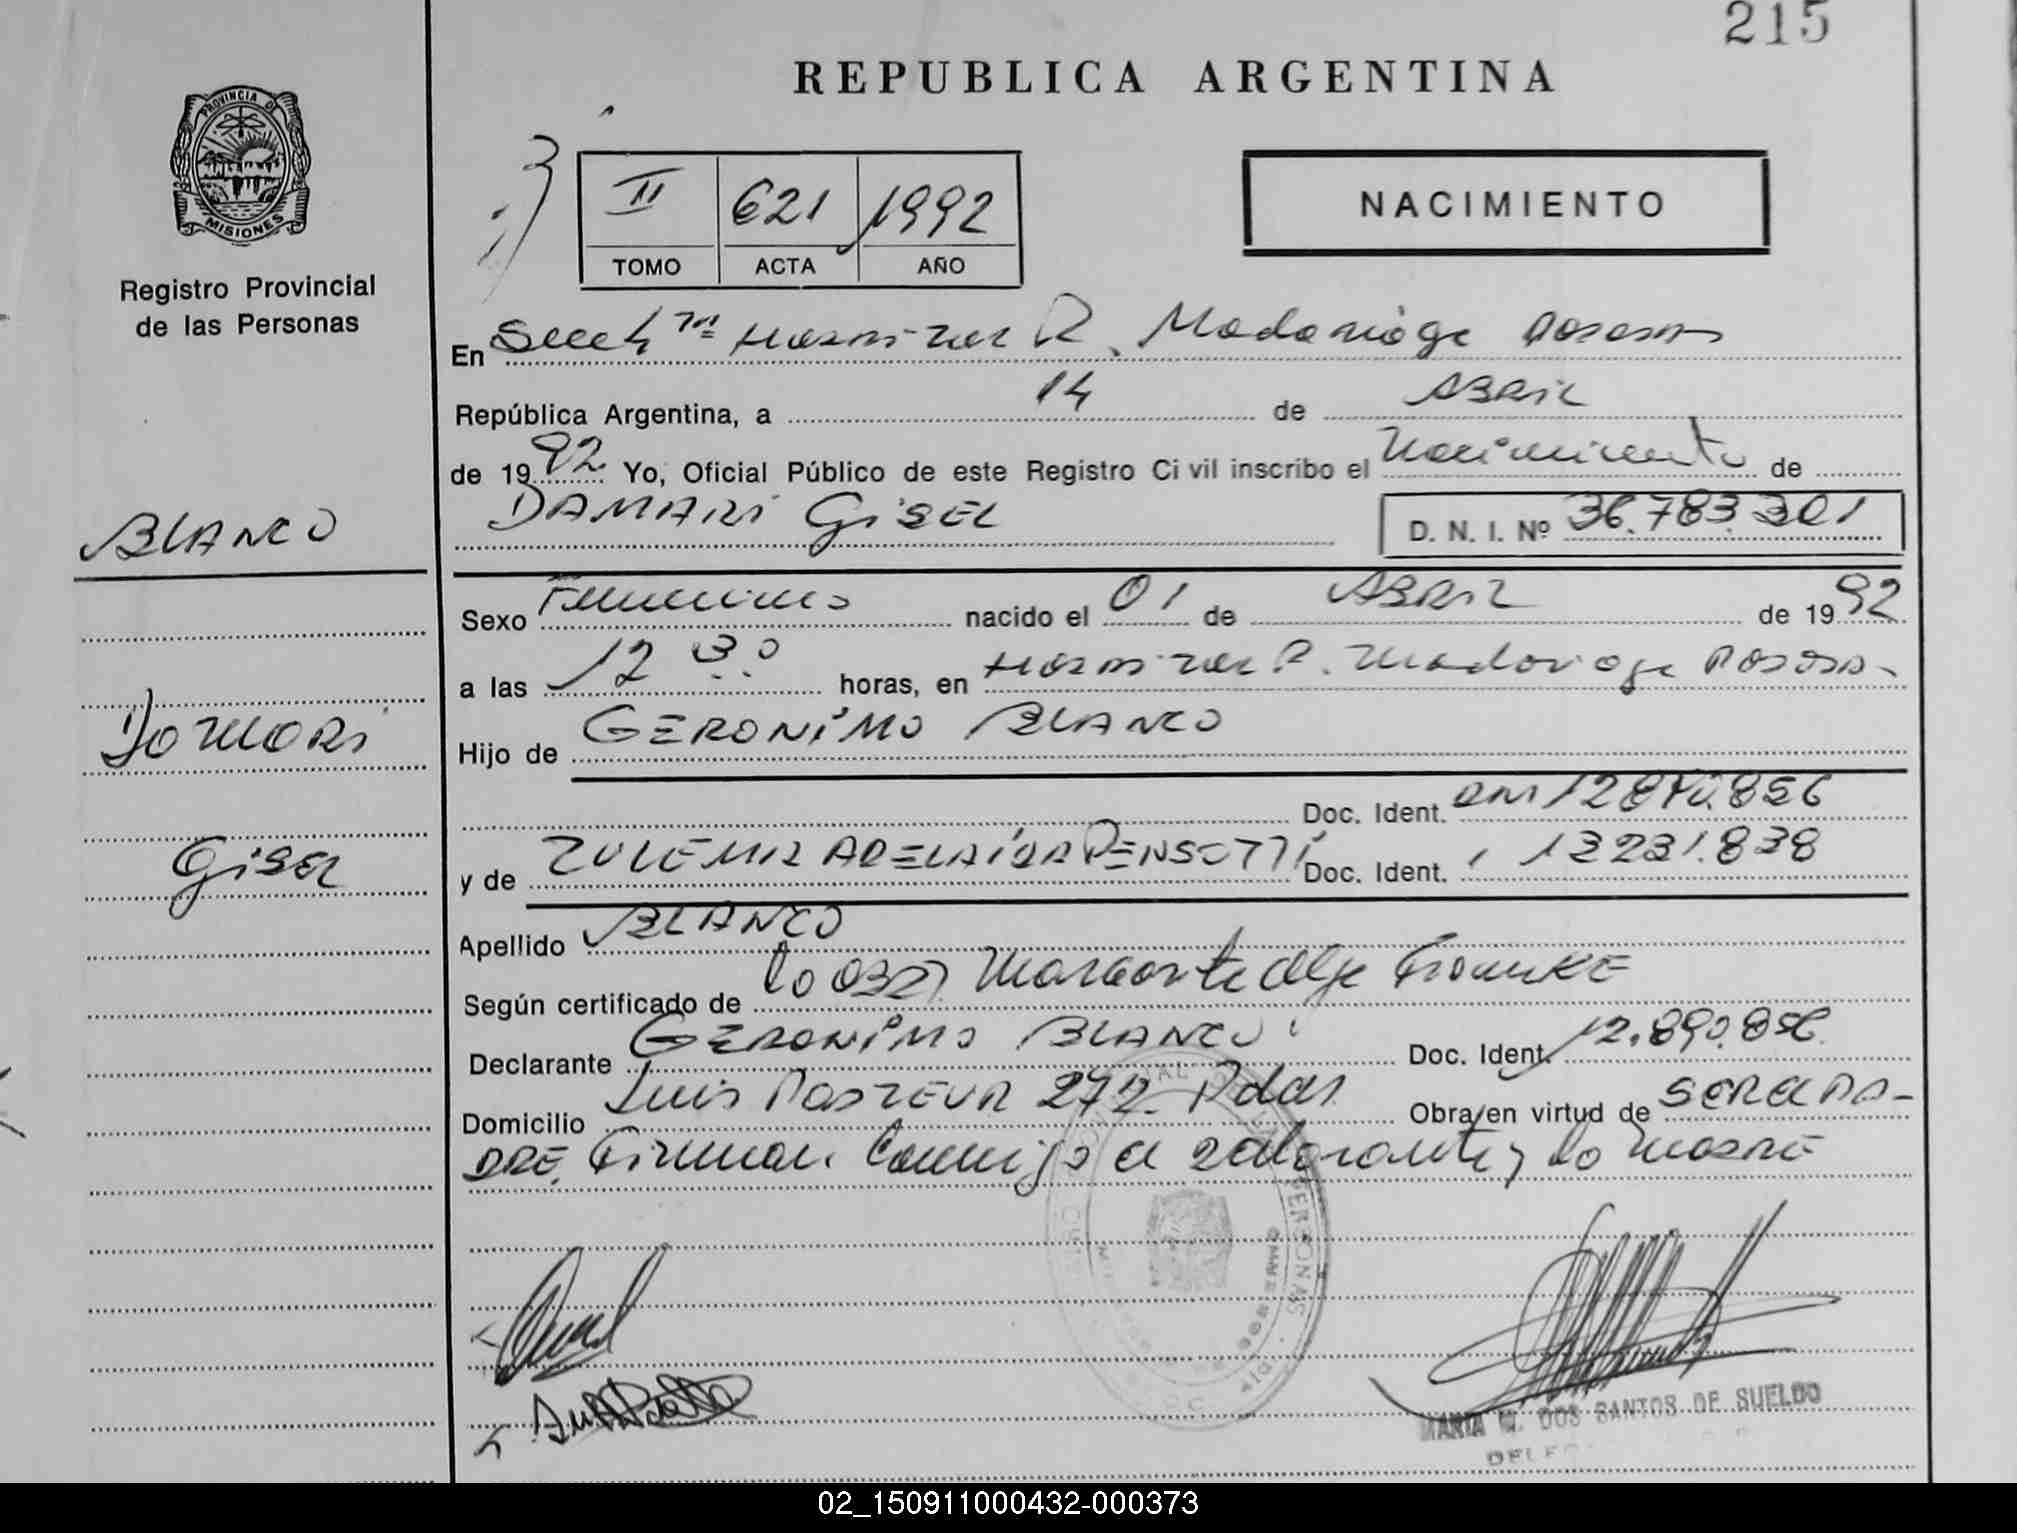 215
REPUBLICA ARGENTINA
PROVINCIA DE
MISIONES
Registro Provincial
de las Personas
II 621 1992
TOMO ACTA AÑO
NACIMIENTO
En Secc 7ª Hospital R. Madariaga Posadas
República Argentina, a 14 de ABRIL
de 1992 Yo, Oficial Público de este Registro Civil inscribo el Nacimiento de
DAMARI GISEL
D. N. I. Nº 36.783.301
BLANCO
Damari
Gisel
Sexo Femenino nacido el 01 de ABRIL de 1992
a las 12 30 horas, en Hospital R. Madariaga Posadas
Hijo de GERONIMO BLANCO
Doc. Ident. DNI 12.890.856
y de ZULEMA ADELAIDA PENSOTTI Doc. Ident. 13231.838
Apellido BLANCO
Según certificado de la Margarita
Declarante GERONIMO BLANCO Doc. Ident. 12.890.856
Domicilio Luis PASTEUR 272 Pdas Obra en virtud de SER el PA-
DRE. Firman Conmigo el declarante y la madre
MARIA DOS SANTOS DE SUELDO
02_150911000432-000373